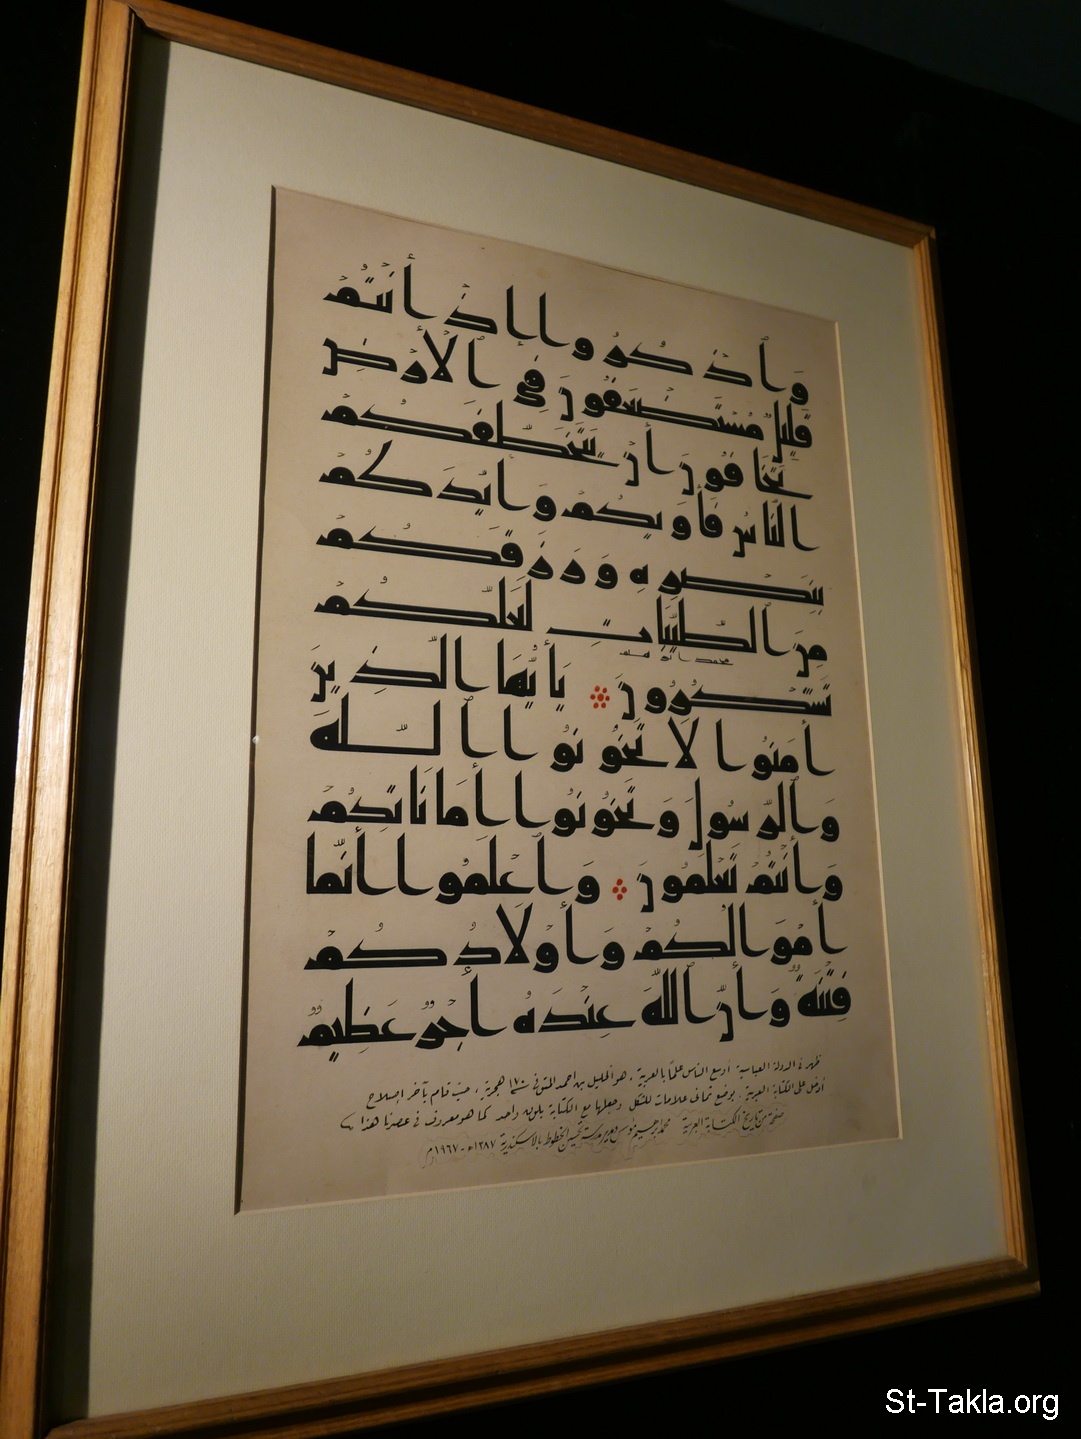 وَٱذْكُرُوا إِذْ أَنتُمْ
قَلِيلٌ مُسْتَضْعَفُونَ فِي ٱلْأَرْضِ
تَخَافُونَ أَنْ يَتَخَطَّفَكُمُ
النَّاسُ فَأَوَيكُمْ وَأَيَّدَكُمْ
بِنَصْرِهِ وَرَزَقَكُمْ
مِنَ ٱلطَّيِّبَاتِ لَعَلَّكُمْ
محمد إبراهيم
تَشْكُرُونَ يَأَيُّهَا الَّذِينَ
أَمَنُوا لَا تَخُونُوا ٱللَّهَ
وَٱلرَّسُولَ وَتَخُونُوا أَمَانَاتِكُمْ
وَأَنْتُمْ تَعْلَمُونَ وَٱعْلَمُوا أَنَّمَا
أَمْوَالُكُمْ وَأَوْلَادُكُمْ
فِتْنَةٌ وَأَنَّ ٱللَّهَ عِنْدَهُ أَجْرٌ عَظِيمٌ
ظهر في الدولة العباسية أوسع الناس علمًا بالعربية، هو الخليل بن أحمد المتوفى سنة ١٧٠ هجرية، حيث قام بآخر إصلاح
أدخل على الكتابة العربية، بوضع ثماني علامات للشكل وجعلها مع الكتابة بلون واحد كما هو معروف في عصرنا هذا
صفحة من تاريخ الكتابة العربية محمد إبراهيم مؤسس ومدير مدرسة تحسين الخطوط بالإسكندرية ١٣٨٧هـ - ١٩٦٧م
St-Takla.org